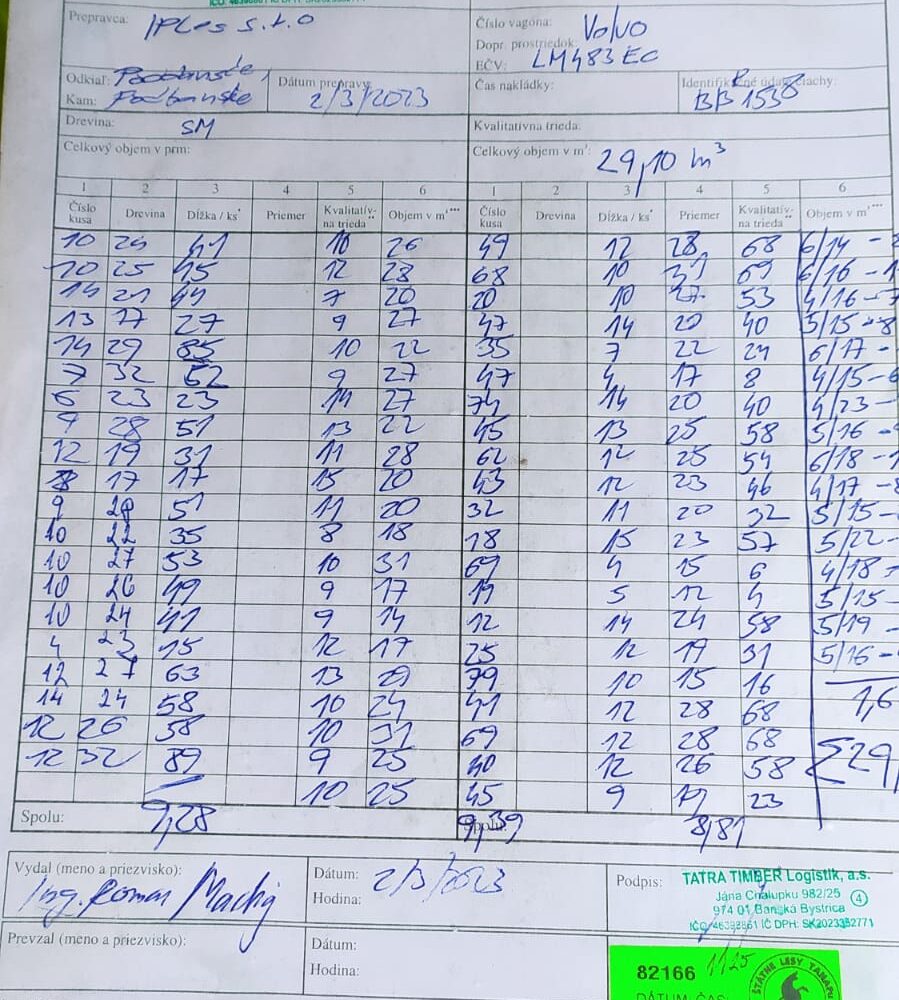 Prepravca: IPLes s.r.o
Číslo vagóna: Volvo
Dopr. prostriedok:
EČV: LM483EC
Odkiaľ: Podbanské,
Kam: Podbanské
Dátum prepravy: 2/3/2023
Čas nakládky:
BB1538
Drevina: SM
Kvalitatívna trieda:
Celkový objem v prm:
Celkový objem v m³: 29,10 m³
1 2 3 4 5 6 1 2 3 4 5 6
Číslo kusa Drevina Dĺžka / ks* Priemer Kvalitatív- na trieda** Objem v m³*** Číslo kusa Drevina Dĺžka / ks* Priemer Kvalitatív- na trieda** Objem v m³***
10 24 41 10 26 49 12 28 68 6/14 -
10 25 45 12 28 68 10 31 69 6/16 - 1
14 21 44 7 20 20 10 27 53 4/16 - 7
13 17 27 9 27 47 14 20 40 5/15 - 8
14 29 85 10 22 35 7 22 24 6/17 -
7 32 52 9 27 47 4 17 8 4/15 - 6
6 23 23 14 27 74 14 20 40 4/23 -
9 28 51 13 22 45 13 25 58 5/16 -
12 19 31 11 28 62 12 25 54 6/18 - 1
8 17 17 15 20 43 12 23 46 4/17 - 8
9 28 51 11 20 32 11 20 32 5/15 -
10 22 35 8 18 18 15 23 57 5/22 -
10 27 53 10 31 69 4 15 6 4/18 -
10 26 49 9 17 19 5 12 4 5/15 -
10 24 41 9 14 12 14 24 58 5/19 -
4 23 15 12 17 25 12 19 31 5/16 -
12 27 63 13 29 79 10 15 16
14 24 58 10 24 41 12 28 68 1,6
12 26 58 10 31 69 12 28 68
12 32 89 9 25 40 12 26 58 Σ29,
10 25 45 9 19 23
Spolu: 9,28 Spolu: 9,39 8,81
Vydal (meno a priezvisko): Ing. Roman Machy
Dátum: 2/3/2023
Hodina:
Podpis: TATRA TIMBER Logistik, a.s.
Jána Chalupku 982/25
974 01 Banská Bystrica
4
IČO: 46398861 IČ DPH: SK2023352771
Prevzal (meno a priezvisko):
Dátum:
Hodina:
82166 1125
ŠTÁTNE LESY TANAPU
DÁTUM ČAS